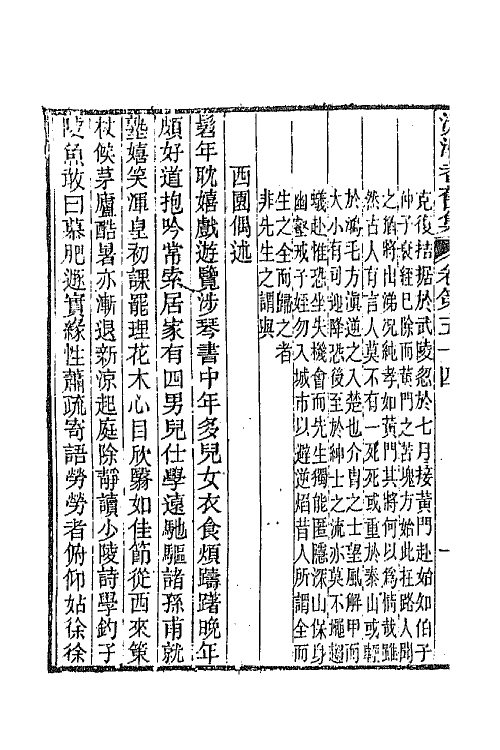 沅湘耆舊集 卷第五十四 一
克復拮据於武陵忽於七月接黃門赴始如伯子
仲子衰絰已除而黃門之苦塊方始此在路人聞
之猶將出涕況純孝如黃門其將何以為情哉雖
然古人有言人莫不有一死死或重於泰山或輕
於鴻毛方滇逆之入楚也介冑之士望風解甲而
大小有司迎降恐後至於紳士之流亦莫不蠅趨
蟻赴惟恐坐失機會而先生獨能匿隱深山保身
幽壑戒子姪勿入城市以避逆焰昔人所謂全而
生之全而歸之者
非先生之謂與
西園偶述
髫年耽嬉戲遊覽涉琴書中年多兒女衣食煩躊躇晚年
頗好道抱吟常索居家有四男兒仕學遠馳驅諸孫甫就
塾嬉笑渾皇初課罷理花木心目欣驂如佳節從西來策
杖候茅廬酷暑亦漸退新涼起庭除靜讀少陵詩學釣子
陵魚敢曰慕肥遯實緣性蕭疏寄語勞勞者俯仰姑徐徐